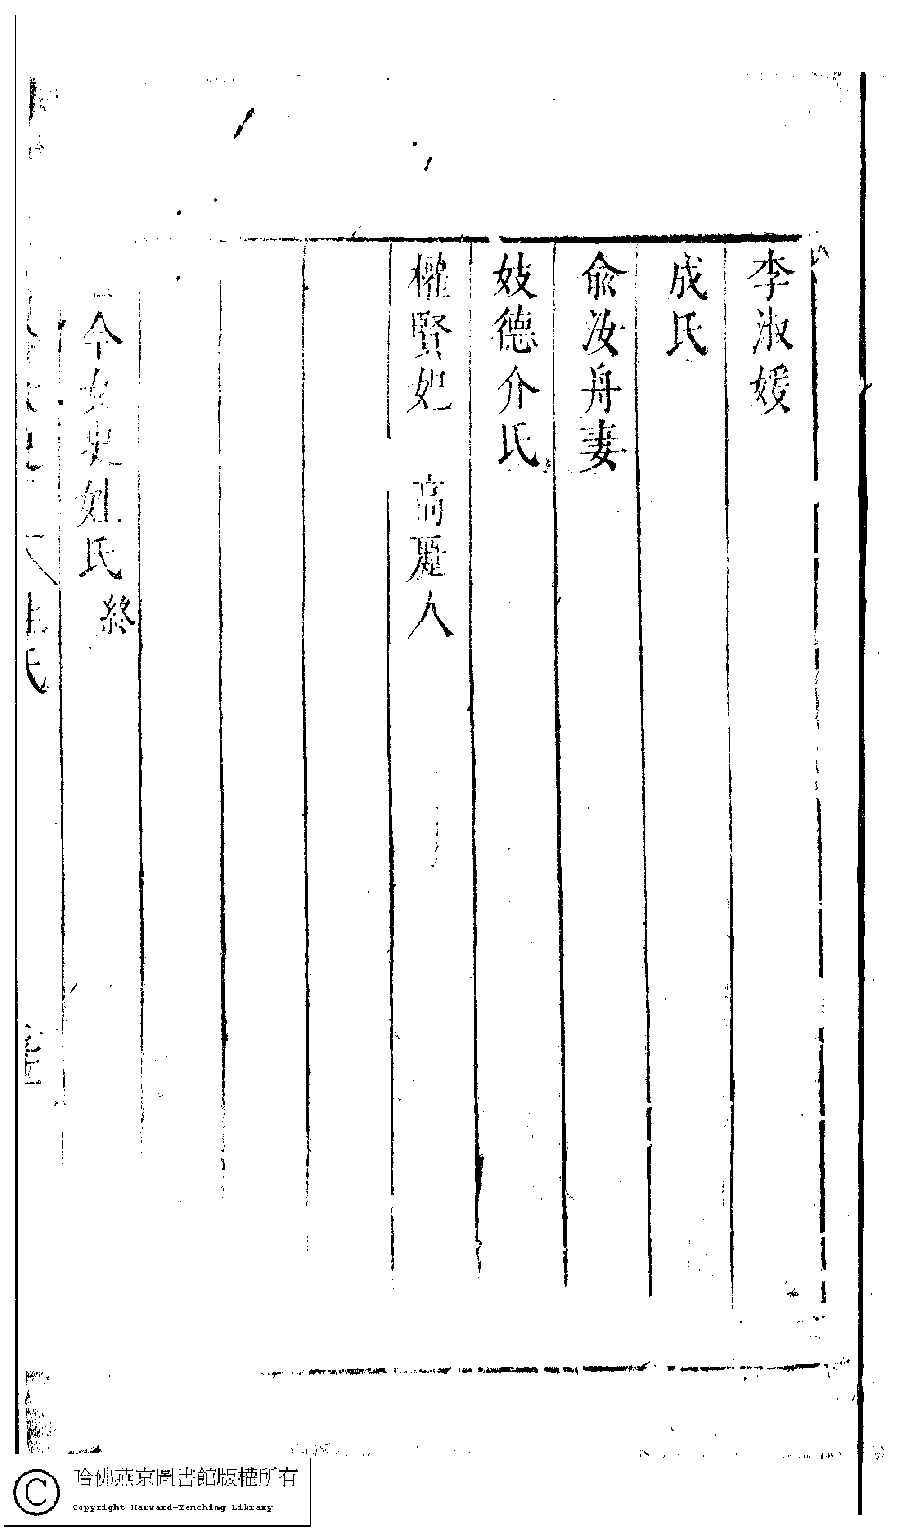 李淑媛
成氏
俞汝舟妻
妓德介氏
權賢妃 高麗人
古今女史姓氏終
姓氏
哈佛燕京圖書館版權所有
Copyright Harvard-Yenching Library